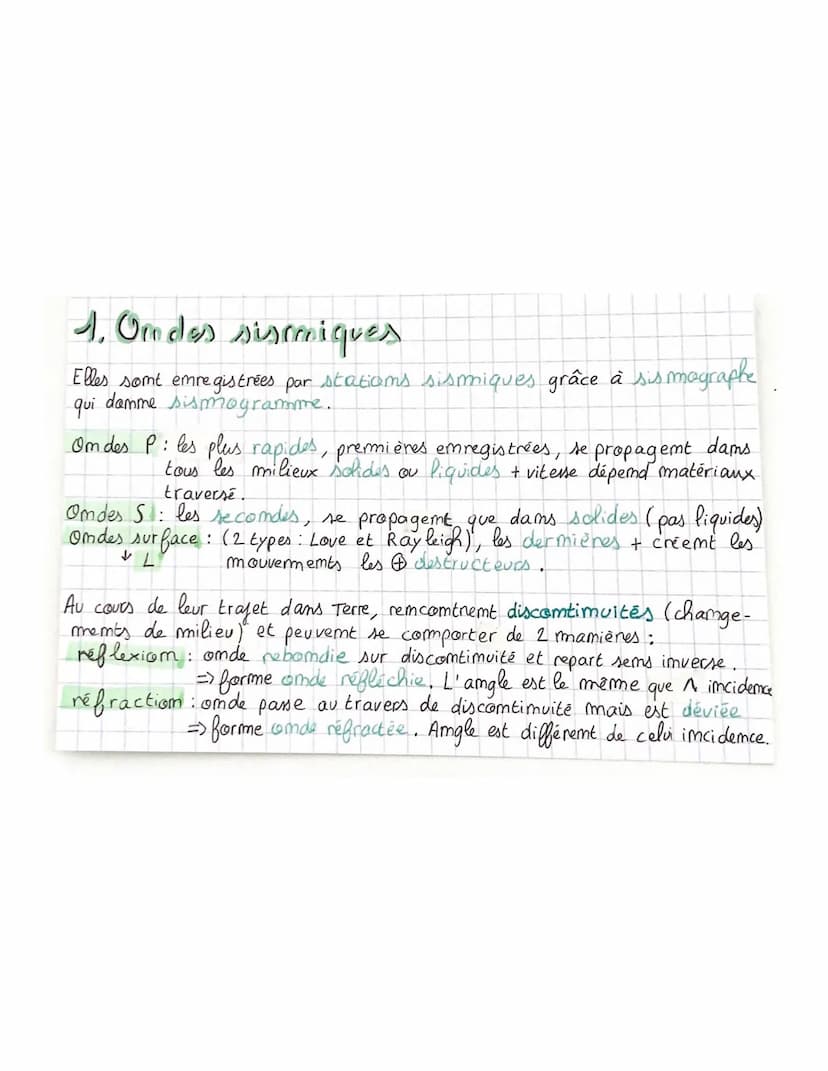 1. Ondes sismiques
Elles sont enregistrées par stations sismiques grâce à sismographe
qui donne sismogramme.
Ondes P : les plus rapides, premières enregistrées, se propagent dans
tous les milieux solides ou liquides + vitesse dépend matériaux
traversé.
Ondes S : les secondes, se propagent que dans solides (pas liquides)
Ondes surface : (2 types : Love et Rayleigh), les dernières + créent les
↓ L mouvements les ⊕ destructeurs.
Au cours de leur trajet dans Terre, rencontrent discontinuités (change-
ments de milieu) et peuvent se comporter de 2 manières :
réflexion : onde rebondie sur discontinuité et repart sens inverse.
⇒ forme onde réfléchie. L'angle est le même que ∧ incidence
réfraction : onde passe au travers de discontinuité mais est déviée
⇒ forme onde réfractée. Angle est différent de celui incidence.